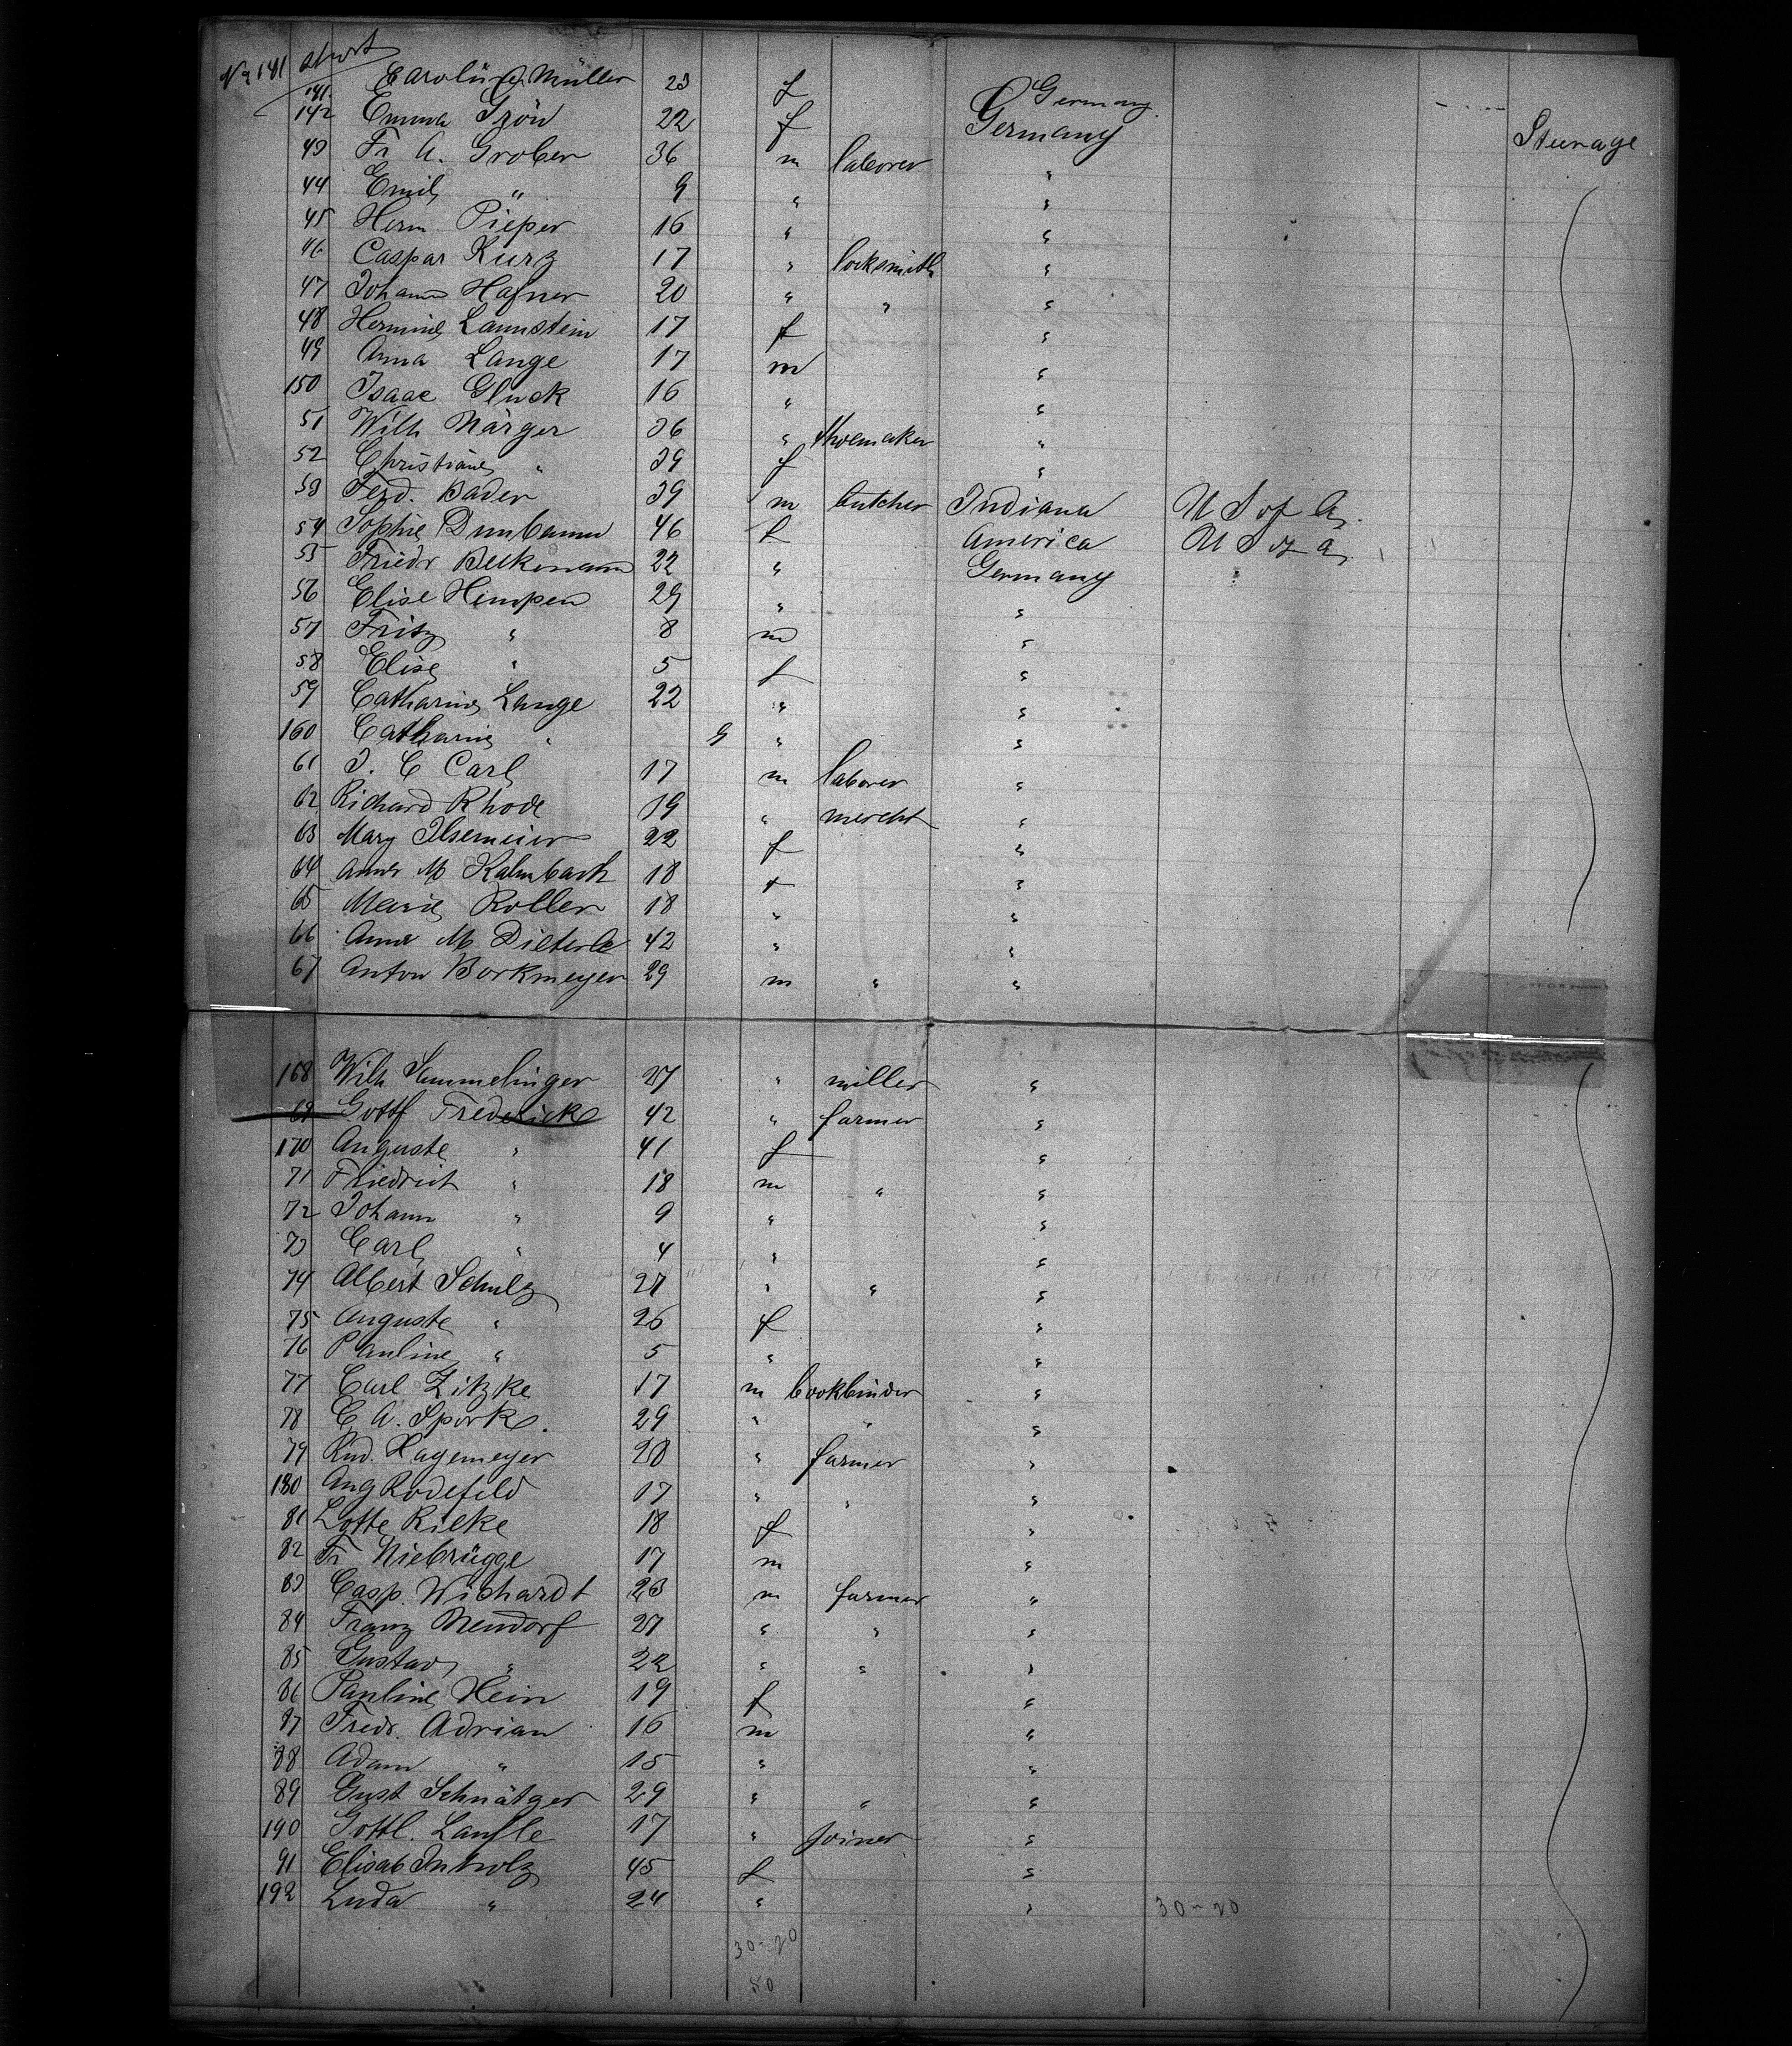 No 141 short
141. Caroline Müller 23 f Germany
142 Emma Grön 22 f Germany Steerage
43 Fr. A. Grober 36 m laborer "
44 Emil " 9 " "
45 Herm. Pieper 16 " "
46 Caspar Kurz 17 " locksmith "
47 Johann Hafner 20 " " "
48 Hermine Lannstein 17 f "
49 Anna Lange 17 m "
150 Isaac Gluck 16 " "
51 Wilh Närger 36 " shoemaker "
52 Christiane " 39 f "
53 Ferd. Bader 39 m butcher Indiana U S of A.
54 Sophie 46 f America U S of A.
55 Friedr Beckmann 22 " Germany
56 Elise Hempen 29 " "
57 Fritz " 8 m "
58 Elise " 5 f "
59 Catharine Lange 22 " "
160 Catharine " 9 " "
61 J. C Carl 17 m laborer "
62 Richard Rhode 19 " mercht "
63 Mary Ilsemeier 22 f "
64 Anna M Kalmbach 18 f "
65 Marie Roller 18 " "
66 Anna M Dieterle 42 " "
67 Anton Borkmeyer 29 m " "
168 Wilh Semmelinger 27 " miller "
69 Gottf Frederick 42 " farmer "
170 Auguste " 41 f "
71 Friedrich " 18 m " "
72 Johann " 9 " "
73 Carl " 4 " "
74 Albert Schulz 27 " " "
75 Auguste " 26 f "
76 Pauline " 5 " "
77 Carl Zitzke 17 m bookbinder "
78 C. A. Spork. 29 " " "
79 Rud. Hagemeyer 28 " farmer "
180 Aug Rodefeld 17 " " "
81 Lotte Rieke 18 f "
82 Fr Niebrügge 17 m "
83 Casp. Wichardt 23 m farmer "
84 Franz Nendorf 27 " " "
85 Gustav " 22 " " "
86 Pauline Hein 19 f "
87 Fredr. Adrian 16 m "
88 Adam " 15 " "
89 Gust Schnätger 29 " " "
190 Gottl. Laufle 17 " joiner "
91 Elisab 45 f "
192 Luda " 24 " " 30-20
30-20
50